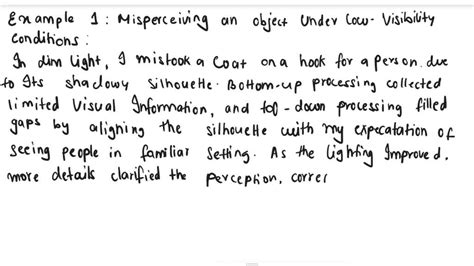 Example 1: Misperceiving an object Under Low-Visibility
Conditions:
In dim light, I mistook a Coat on a hook for a person due
to Its shadowy silhouette. Bottom-up processing collected
limited Visual Information, and top-down processing filled
gaps by aligning the silhouette with my expecatation of
seeing people in familiar Setting. As the lighting Improved,
more details clarified the perception, correc